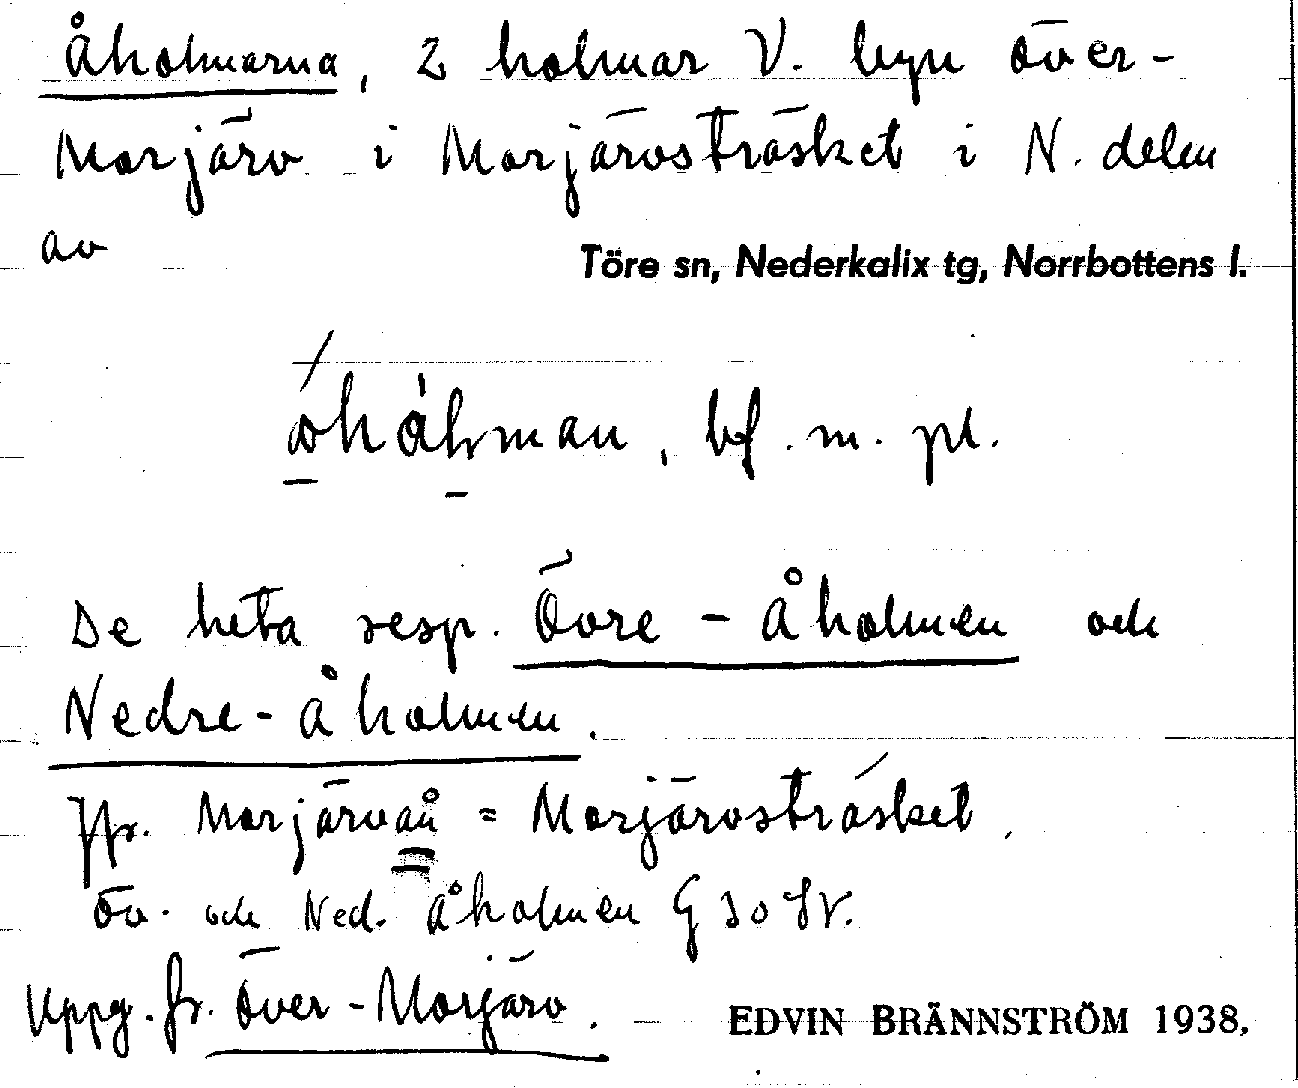 Åholmarna, 2 holmar V. byn Över-
Morjärv i Morjärvsträsket i N. delen
av Töre sn, Nederkalix tg, Norrbottens l.
bf. m. pl.
De heta resp. Övre-Åholmen och
Nedre-Åholmen.
Jfr. Morjärvån = Morjärvsträsket.
Öv. och Ned. Åholmen G
Uppg. fr. Över-Morjärv. EDVIN BRÄNNSTRÖM 1938.